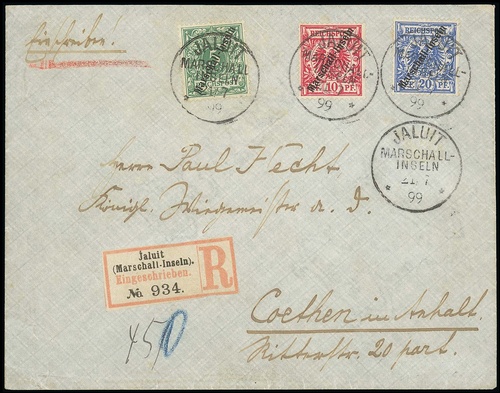 Einschreiben!
Marschall-Inseln
REICHSPOST
Marschall-Inseln
10 PF.
REICHSPOST
Marschall-Inseln
20 PF.
JALUIT
MARSCHALL-
INSELN
99
JALUIT
99
JALUIT
99
JALUIT
MARSCHALL-
INSELN
21 7
99
Herrn Paul Hecht
Königl. a. D.
Jaluit
(Marschall-Inseln).
Eingeschrieben.
№ 934.
R
Coethen in Anhalt.
Ritterstr. 20 part.
450